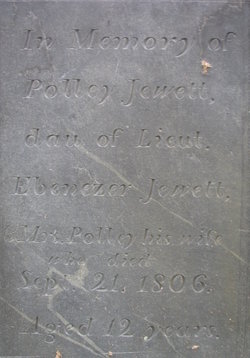 In Memory of
Polley Jewett,
dau. of Lieut.
Ebenezer Jewett,
& Mrs. Polley his wife
who died
Sept. 21, 1806.
Aged 12 years.